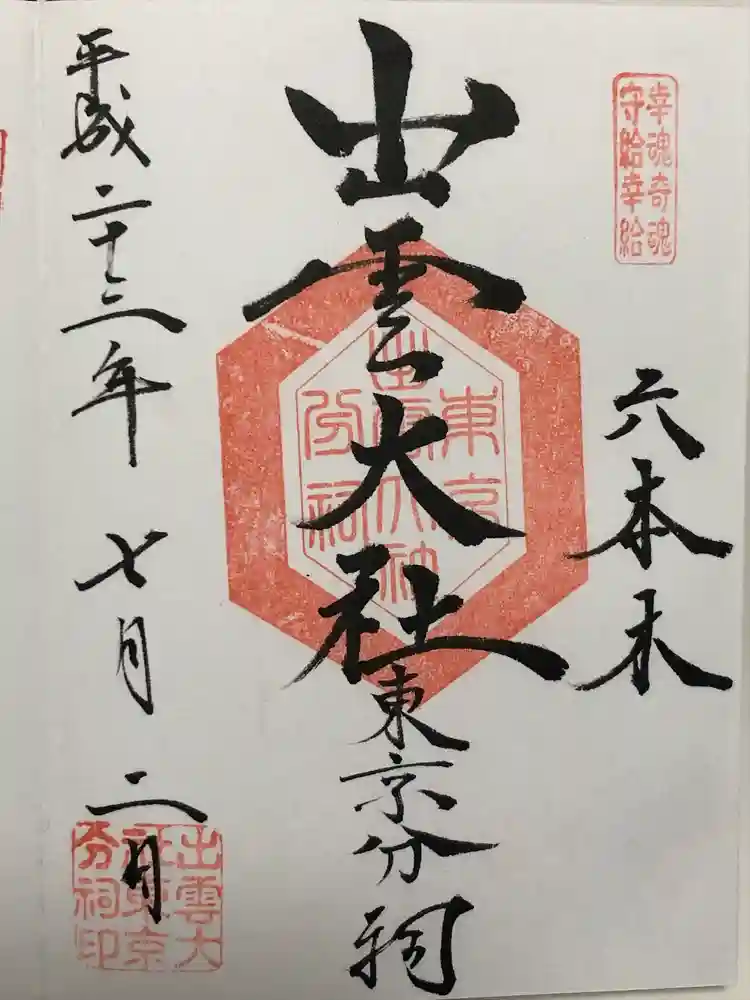 幸魂奇魂
守給幸給
六本木
出雲大社東京分祠
東京
出雲大神
分祠
平成二十三年七月二日
出雲大
社東京
分祠印